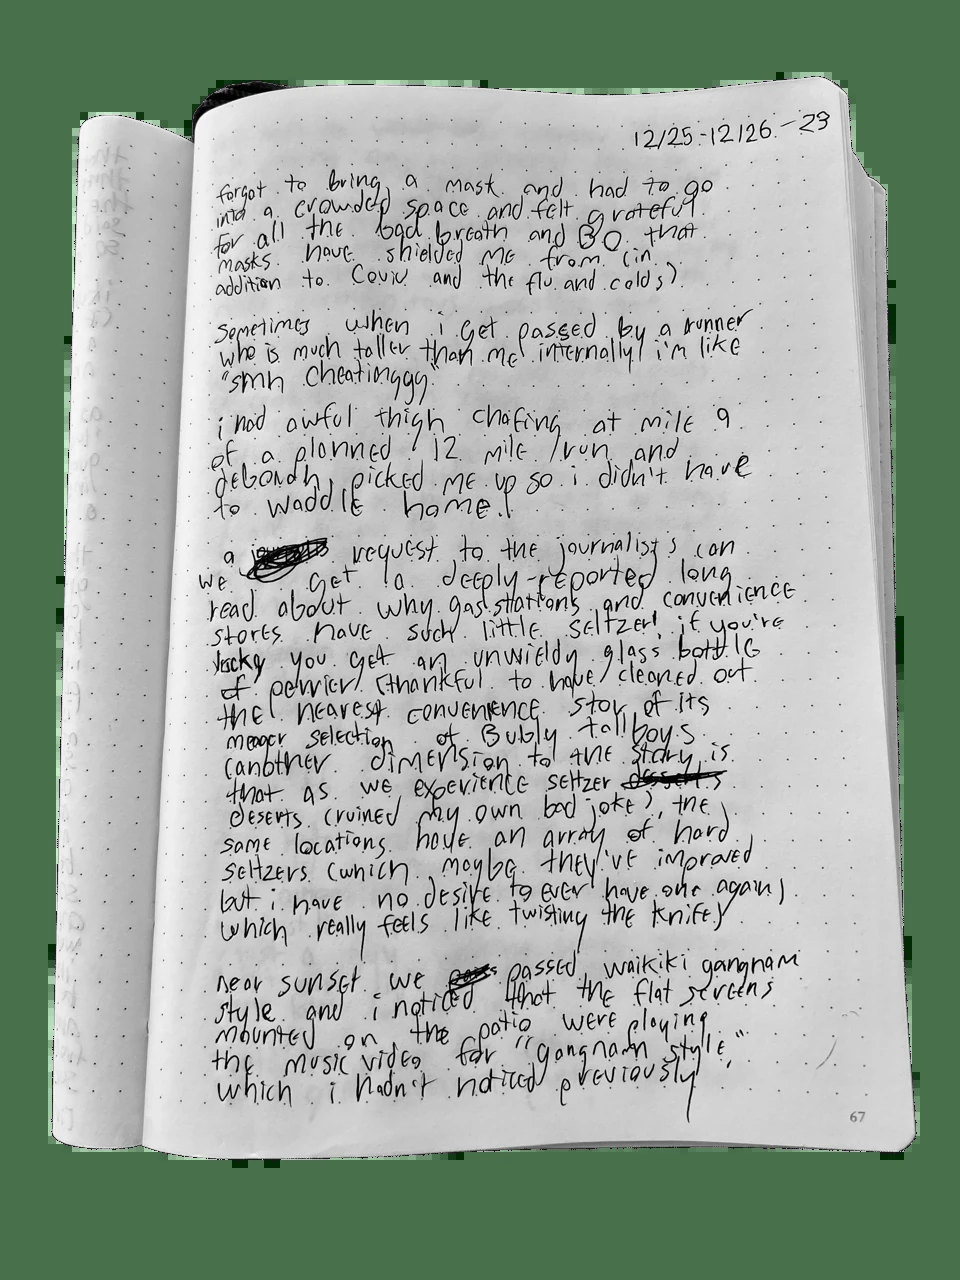 12/25-12/26-23
forgot to bring a mask and had to go
into a crowded space and felt grateful
for all the bad breath and BO that
masks have shielded me from (in
addition to Coviv and the flu and colds)
sometimes when i get passed by a runner
who is much taller than me internally i'm like
"smh cheatinggg"
i had awful thigh chafing at mile 9
of a planned 12 mile run and
deborah picked me up so i didn't have
to waddle home!
a request to the journalists can
we get a deeply-reported long
read about why gas stations and convenience
stores have such little seltzer! if you're
lucky you get an unwieldy glass bottle
of perrier (thankful to have cleaned out
the nearest convenience stor of its
meager selection of Bubly tallboys
(another dimension to the story is
that as we experience seltzer desserts
deserts (ruined my own bad joke), the
same locations have an array of hard
seltzers (which maybe they've improved
but i have no desire to ever have one again)
which really feels like twisting the knife)
near sunset we passed waikiki gangnam
style and i noticed that the flat screens
mounted on the patio were playing
the music video for "gangnam style,"
which i hadn't noticed previously
67